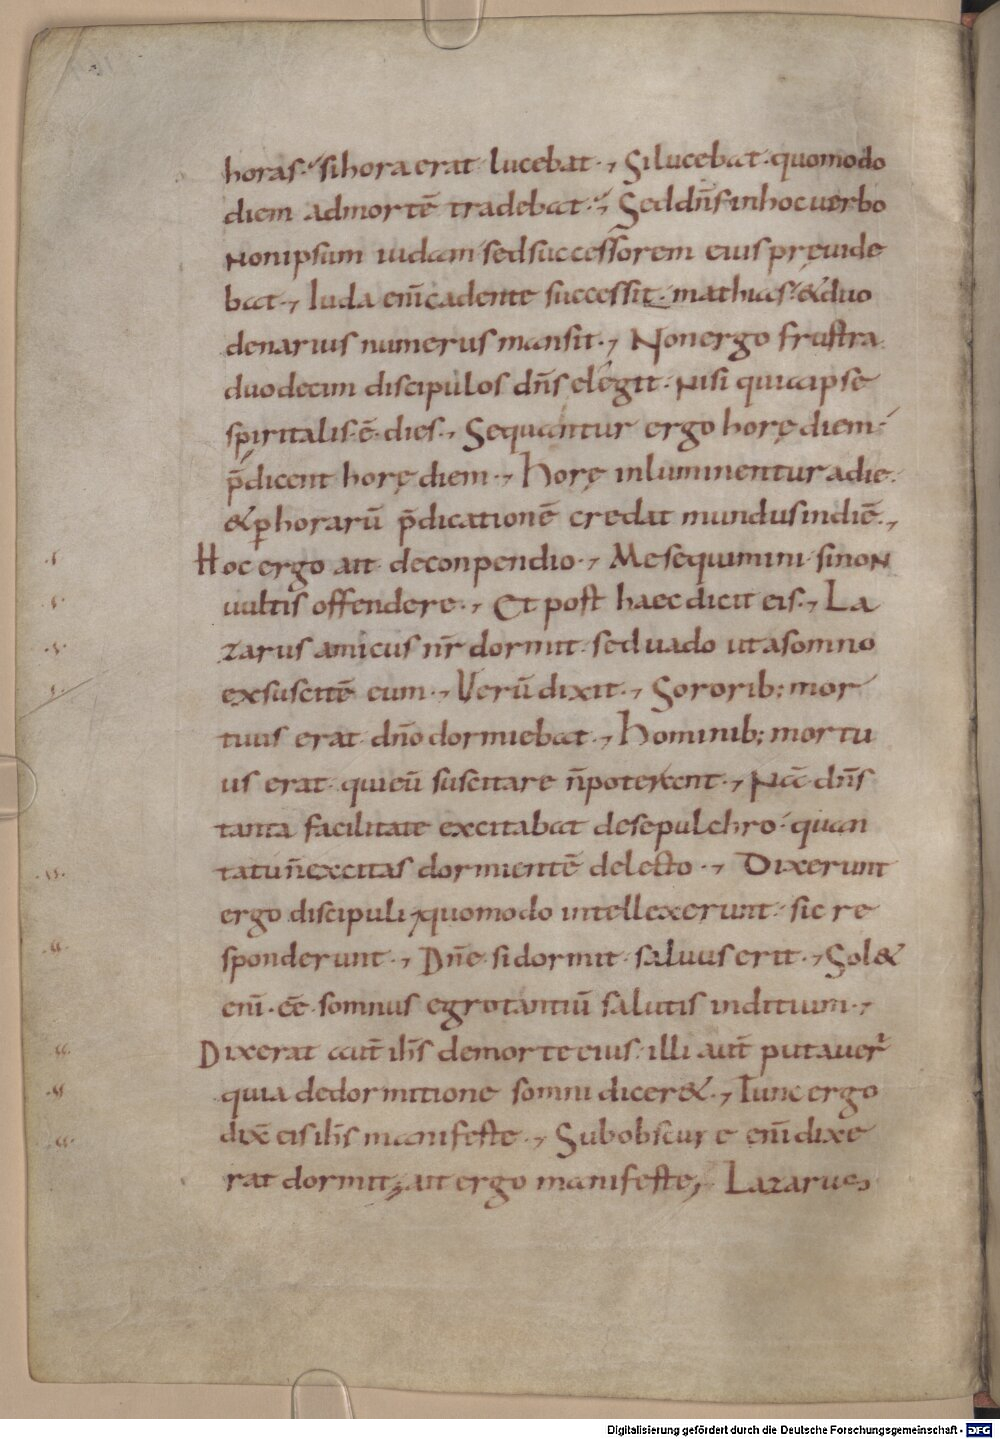 horas·́ si hora erat lucebat·, Si lucebat· quomodo
diem ad mortē tradebat·, Sed dn̄s in hoc uerbo
Non ipsum iudam· sed successorem eius pręuide
bat·, Iuda eni̅ cadente successit· mathias· & duo
denarius numerus mansit·, Non ergo frustra
duodecim discipulos dn̄s elegit· Nisi quia ipse
spiritalis ē dies·, Sequantur ergo horę diem·
p̄dicent horę diem·, Horę inluminentur a die·
& ꝑ horarū p̄dicationē credat mundus in diē·,
Hoc ergo ait de conpendio·, Me sequimini· si noN
uultis offendere·, Et post haec dicit eis·, La
zarus amicus nr̄ dormit· sed uado ut a somno
exsuscitē eum·, Verū dixit·, Sororib; mor
tuus erat· dn̄o dormiebat·, Hominib; mortu
us erat· qui eū suscitare n̄ poterant·, Nā dn̄s
tanta facilitate excitabat de sepulchro· quan
ta tu n̄ excitas dormientē de lecto·, Dixerunt
ergo discipuli, quomodo intellexerunt· sic re
sponderunt·, Dn̄e si dormit· saluus erit·, Sol&
eni̅· eē̄ somnus egrotantiū salutis inditium·,
Dixerat aut̄ ih̄s de morte eius· illi aut̄ putauer̄
quia de dormitione somni dicer&·, Tunc ergo
dix̄ eis ih̄s manifeste·, Subobscure eni̅ dixe
rat dormit, ait ergo manifeste, Lazarus
Digitalisierung gefördert durch die Deutsche Forschungsgemeinschaft - DFG